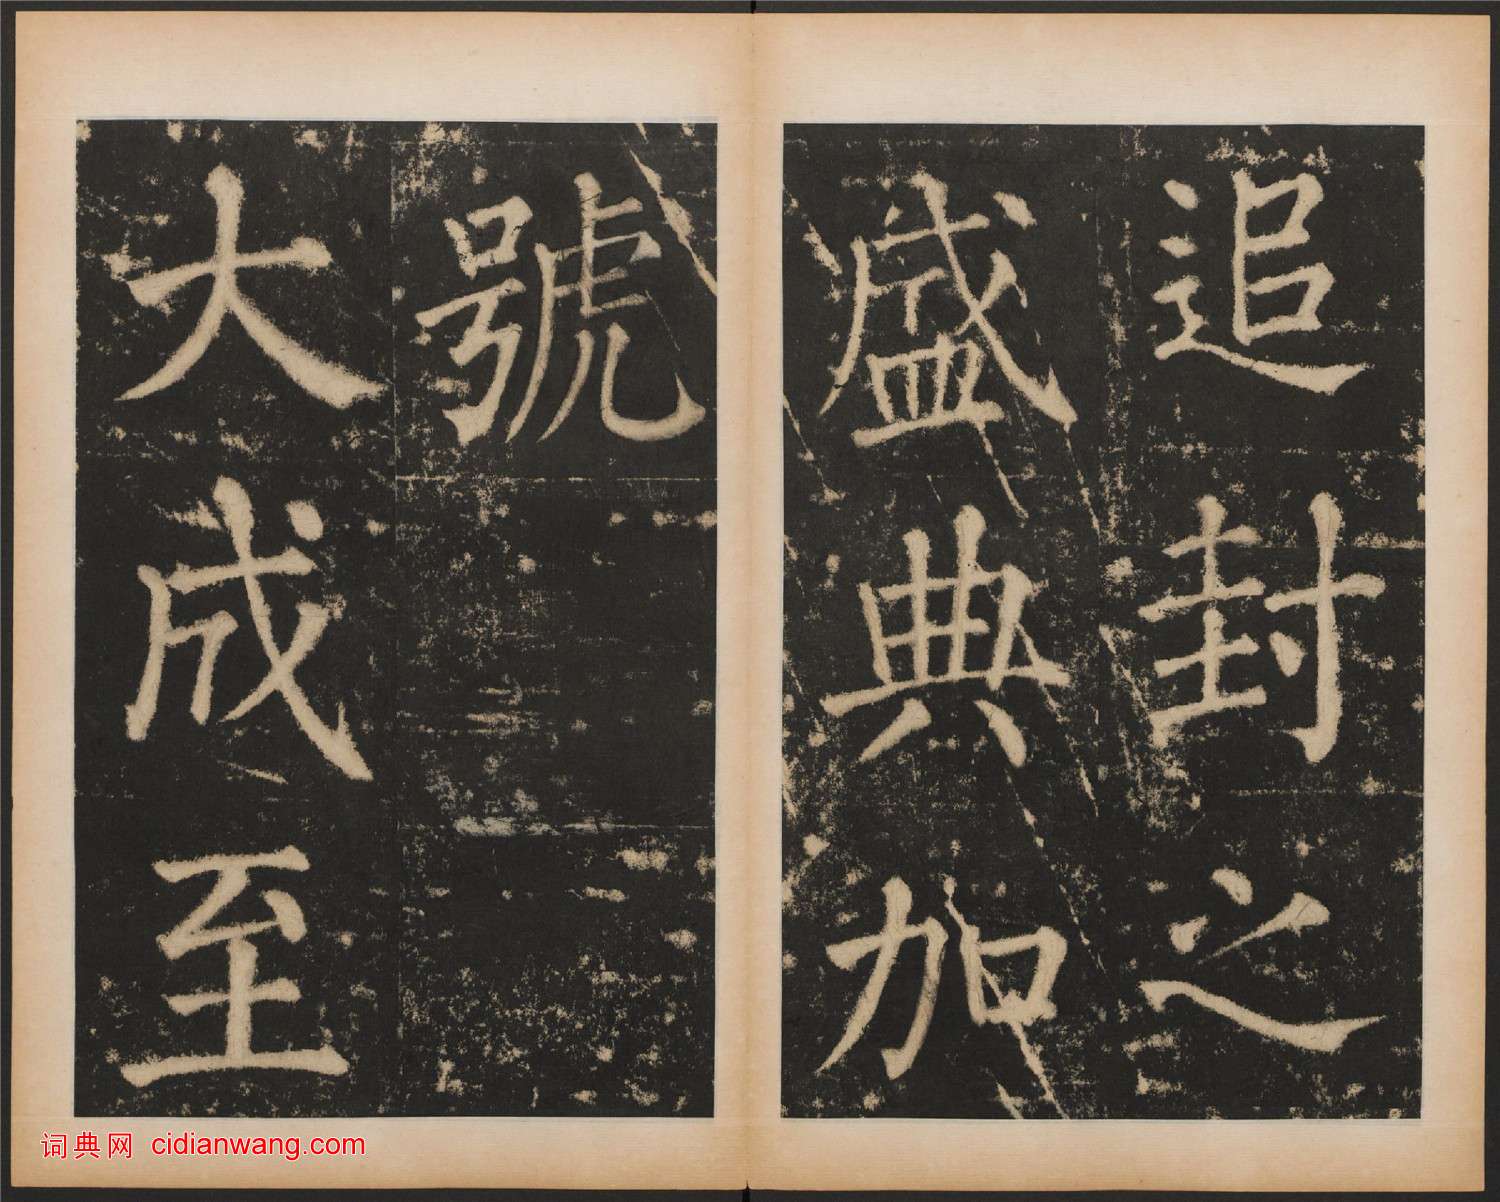 追封之
盛典加
號
大成至
词典网 cidianwang.com